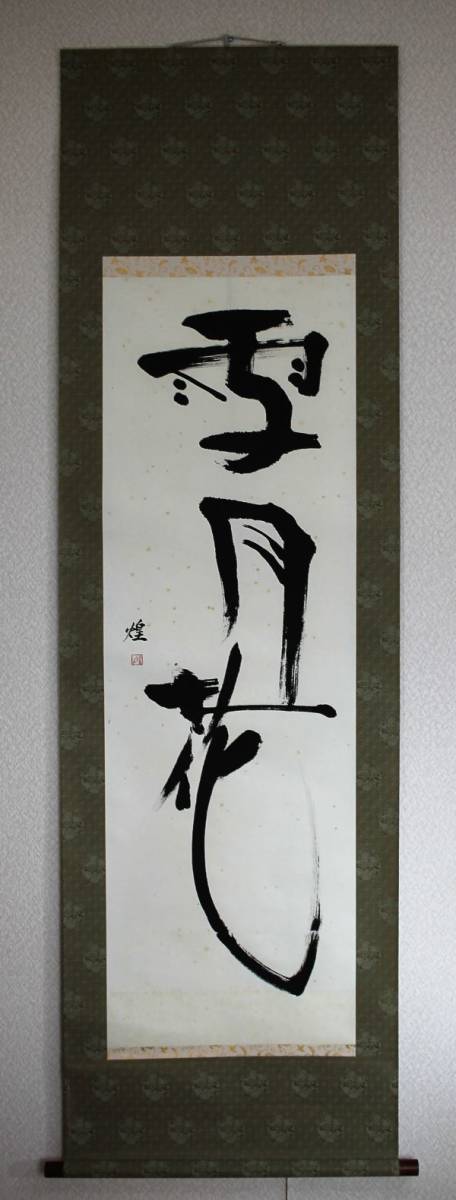 雪月花
煌